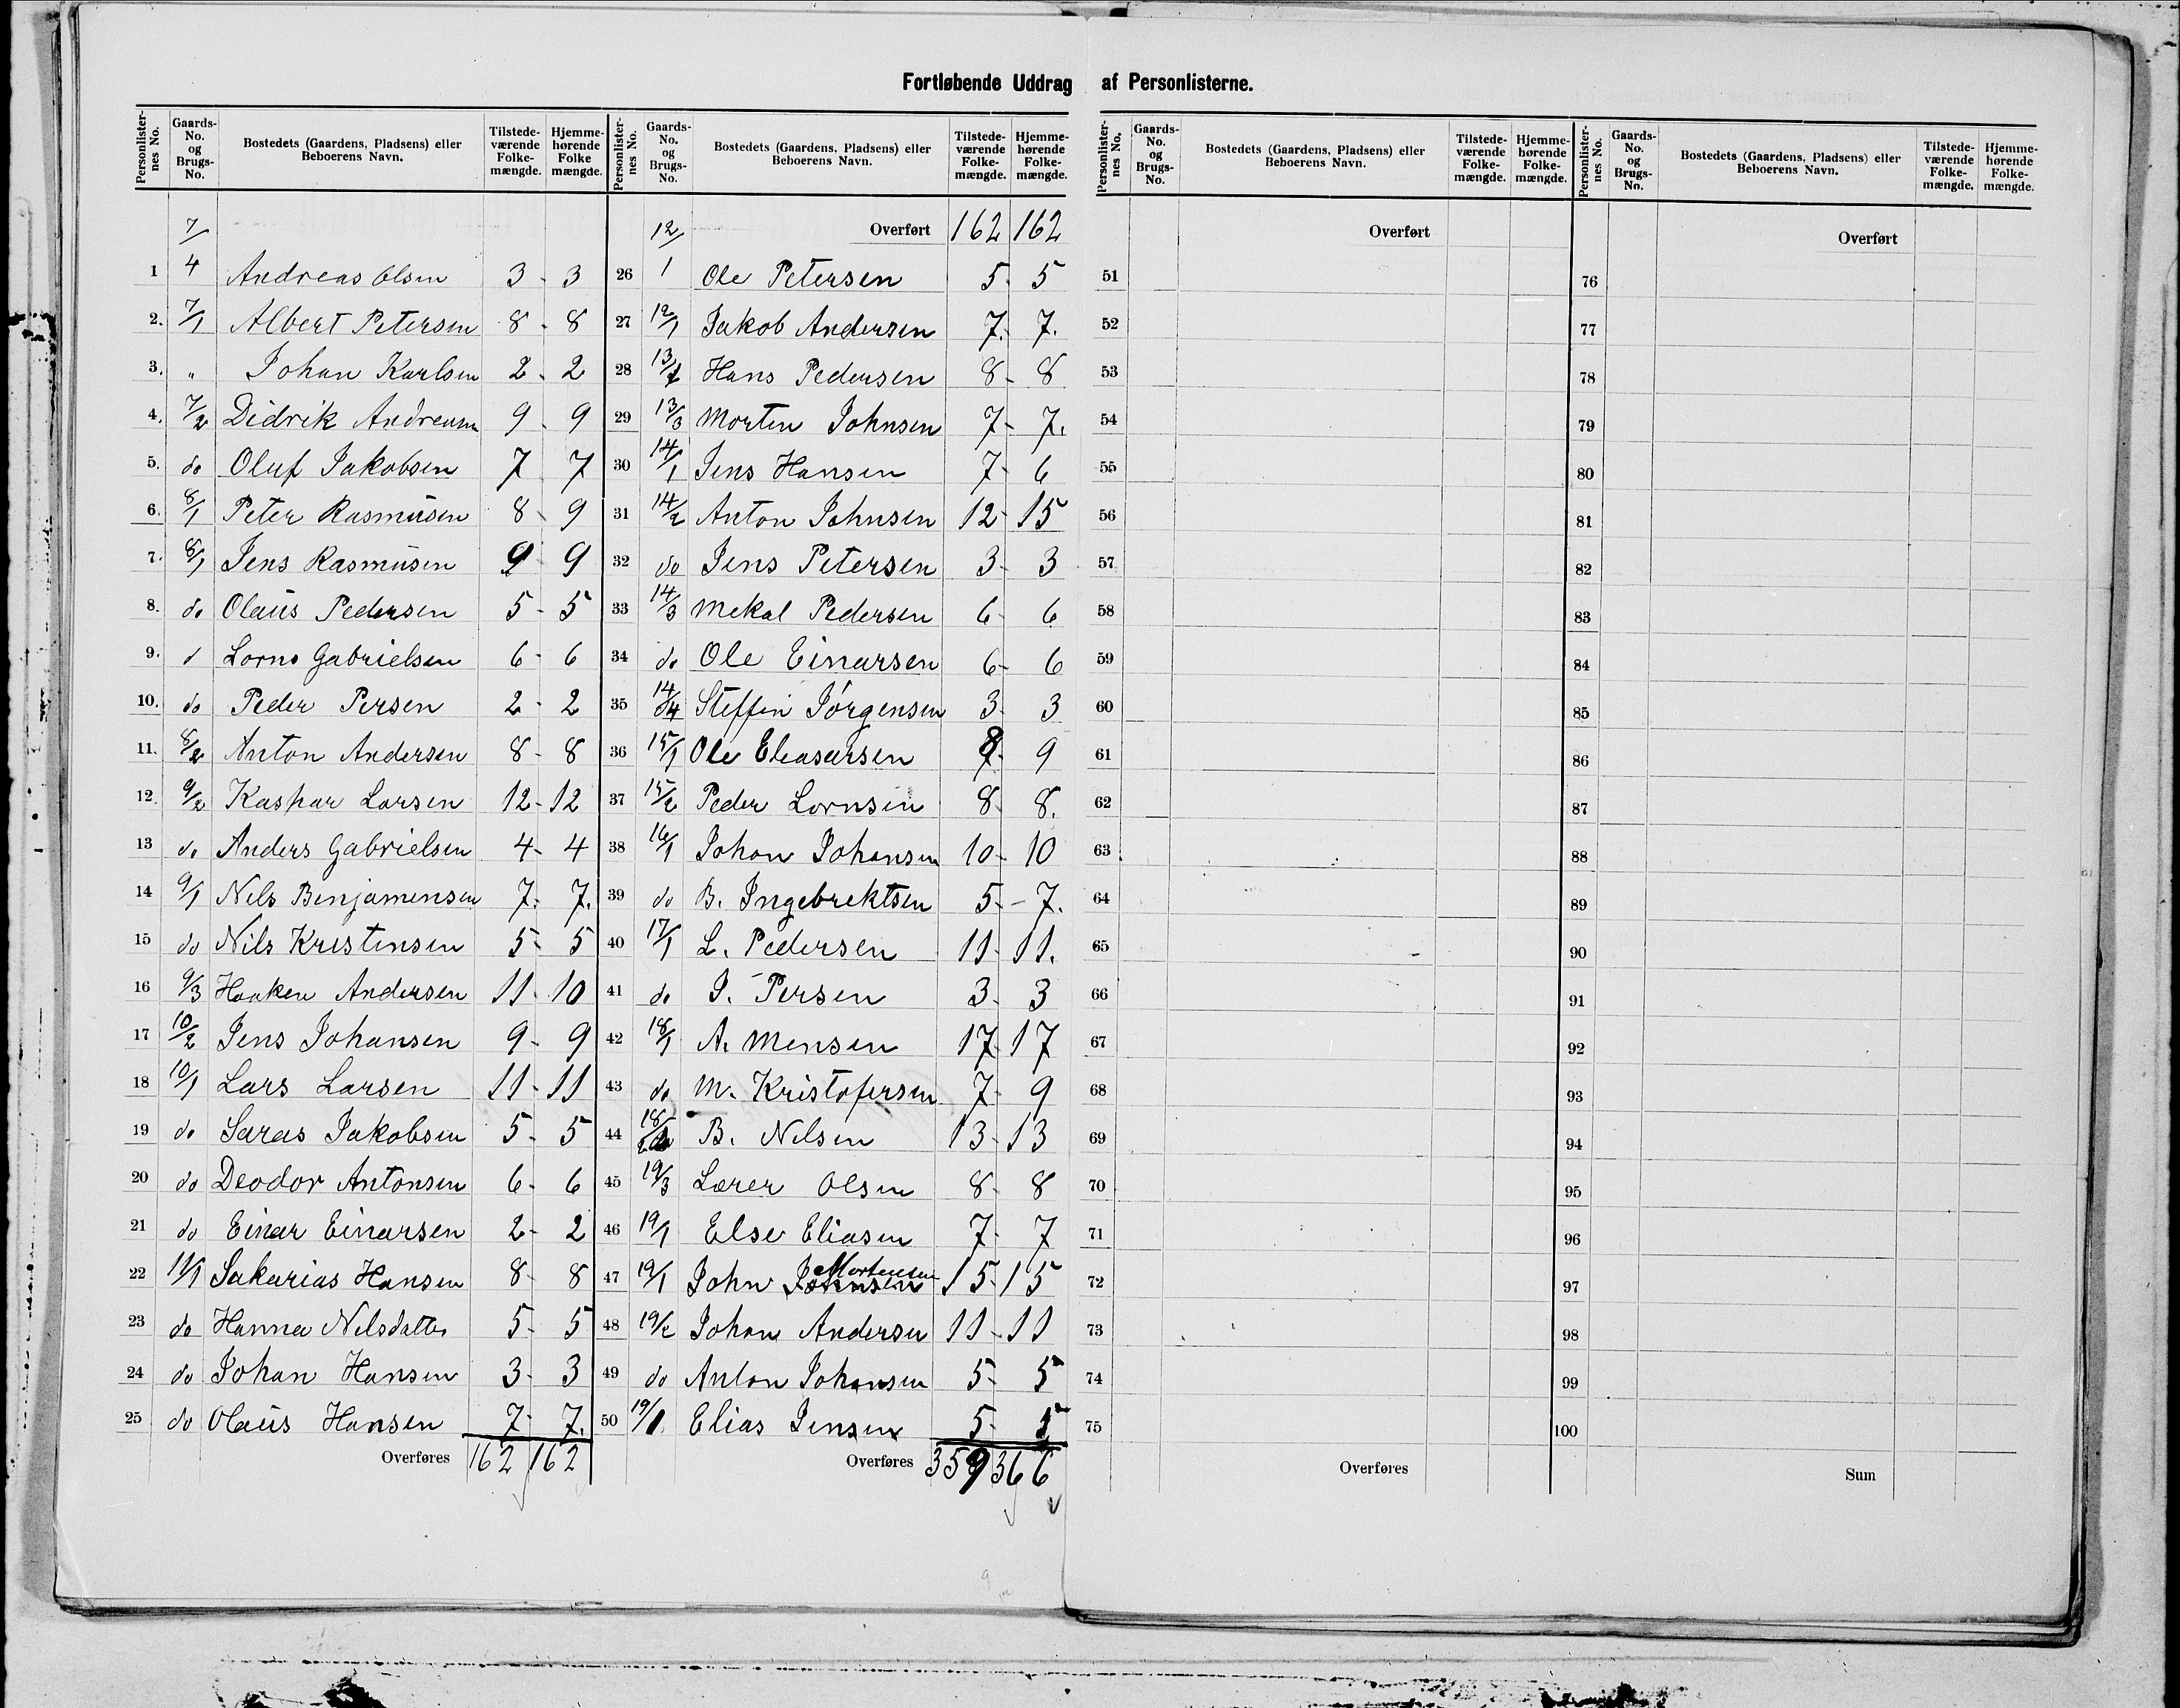 Fortløbende Uddrag af Personlisterne.
Personlister-nes No. Gaards-No. og Brugs-No. Bostedets (Gaardens, Pladsens) eller Beboerens Navn. Tilstede-værende Folke-mængde. Hjemme-hørende Folke mængde.
7/
1 4 Andreas Olsen 3 - 3
2. 7/1 Albert Petersen 8 - 8
3. " Johan Karlsen 2 - 2
4. 7/2 Didrik Andreasen 9 - 9
5. do Oluf Jakobsen 7 7
6. 8/1 Peter Rasmüsen 8 - 9
7. 8/1 Jens Rasmüsen 9 9
8. do Olaüs Pedersen 5 - 5
9. d Lorns Gabrielsen 6 - 6
10. do Peder Persen 2 - 2
11. 8/2 Anton Andersen 8 - 8
12. 9/2 Kaspar Larsen 12 - 12
13 do Anders Gabrielsen 4 - 4
14 9/1 Nels Benjamensen 7. 7.
15 do Nils Kristensen 5 - 5
16 9/3 Haaken Andersen 11 - 10
17 10/2 Jens Johansen 9 - 9
18 10/1 Lars Larsen 11 - 11
19 do Saras Jakobsen 5 - 5
20 do Deodor Antonsen 6 - 6
21 do Einar Einarsen 2 - 2
22 11/1 Sakarias Hansen 8 - 8
23 do Hanna Nilsdatter 5 - 5
24 do Johan Hansen 3 - 3
25 do Olaüs Hansen 7 - 7.
Overføres 162 162
Personlister-nes No. Gaards-No. og Brugs-No. Bostedets (Gaardens, Pladsens) eller Beboerens Navn. Tilstede-værende Folke-mængde. Hjemme-hørende Folke-mængde.
12/ Overført 162 162
26 1 Ole Petersen 5 - 5
27 12/1 Jakob Andersen 7. 7.
28 13/1 Hans Pedersen 8 - 8
29 13/3 Morten Johnsen 7 - 7.
30 14/1 Jens Hansen 7 - 6
31 14/2 Anton Johnsen 12 - 15
32 do Jens Petersen 3 - 3
33 14/3 Mekal Pedersen 6 - 6
34 do Ole Einarsen 6 - 6
35 14/4 Steffen Jørgensen 3 - 3
36 15/1 Ole Eleasarsen 8 - 9
37 15/2 Peder Lornsen 8 - 8.
38 16/1 Johan Johansen 10 - 10
39 do B. Ingebrektsen 5 - 7.
40 17/1 L. Pedersen 11 - 11.
41 do J. Persen 3 - 3
42 18/1 A. Mensen 17 17
43 do M. Kristofersen 7 - 9
44 18/2 B. Nilsen 13 - 13
45 19/3 Lærer Olsen 8 - 8
46 19/1 Else Eliasen 7 - 7
47 19/1 John Johnsen Mortensen 15 - 15
48 19/2 Johan Andersen 11 - 11
49 do Anton Johansen 5 - 5
50 19/1 Elias Jensen 5 - 5
Overføres 359 366
Personlister-nes No. Gaards-No. og Brugs-No. Bostedets (Gaardens, Pladsens) eller Beboerens Navn. Tilstede-værende Folke-mængde. Hjemme-hørende Folke-mængde.
Overført
51
52
53
54
55
56
57
58
59
60
61
62
63
64
65
66
67
68
69
70
71
72
73
74
75
Overføres
Personlister-nes No. Gaards-No. og Brugs-No. Bostedets (Gaardens, Pladsens) eller Beboerens Navn. Tilstede-værende Folke-mængde. Hjemme-hørende Folke-mængde.
Overført
76
77
78
79
80
81
82
83
84
85
86
87
88
89
90
91
92
93
94
95
96
97
98
99
100
Sum